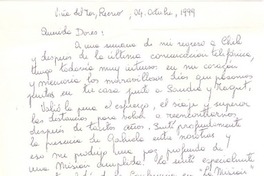 Viña del Mar, Recreo, 04, Octubre, 1999
Querida Doris:
A una semana de mi regreso a Chile
y después de la última comunicación telefónica,
tengo todavía muy intenso en mi corazón
y memoria los maravillosos días que pasamos
juntas en tu casa junto a Sandie y
Valió la pena el esfuerzo, el viaje y superar
las distancias para volver a reencontrarnos
después de tantos años. Sentí profundamente
la presencia de Gabriela entre nosotras y
eso me produjo una paz profunda de
una Misión cumplida. La sentí especialmente